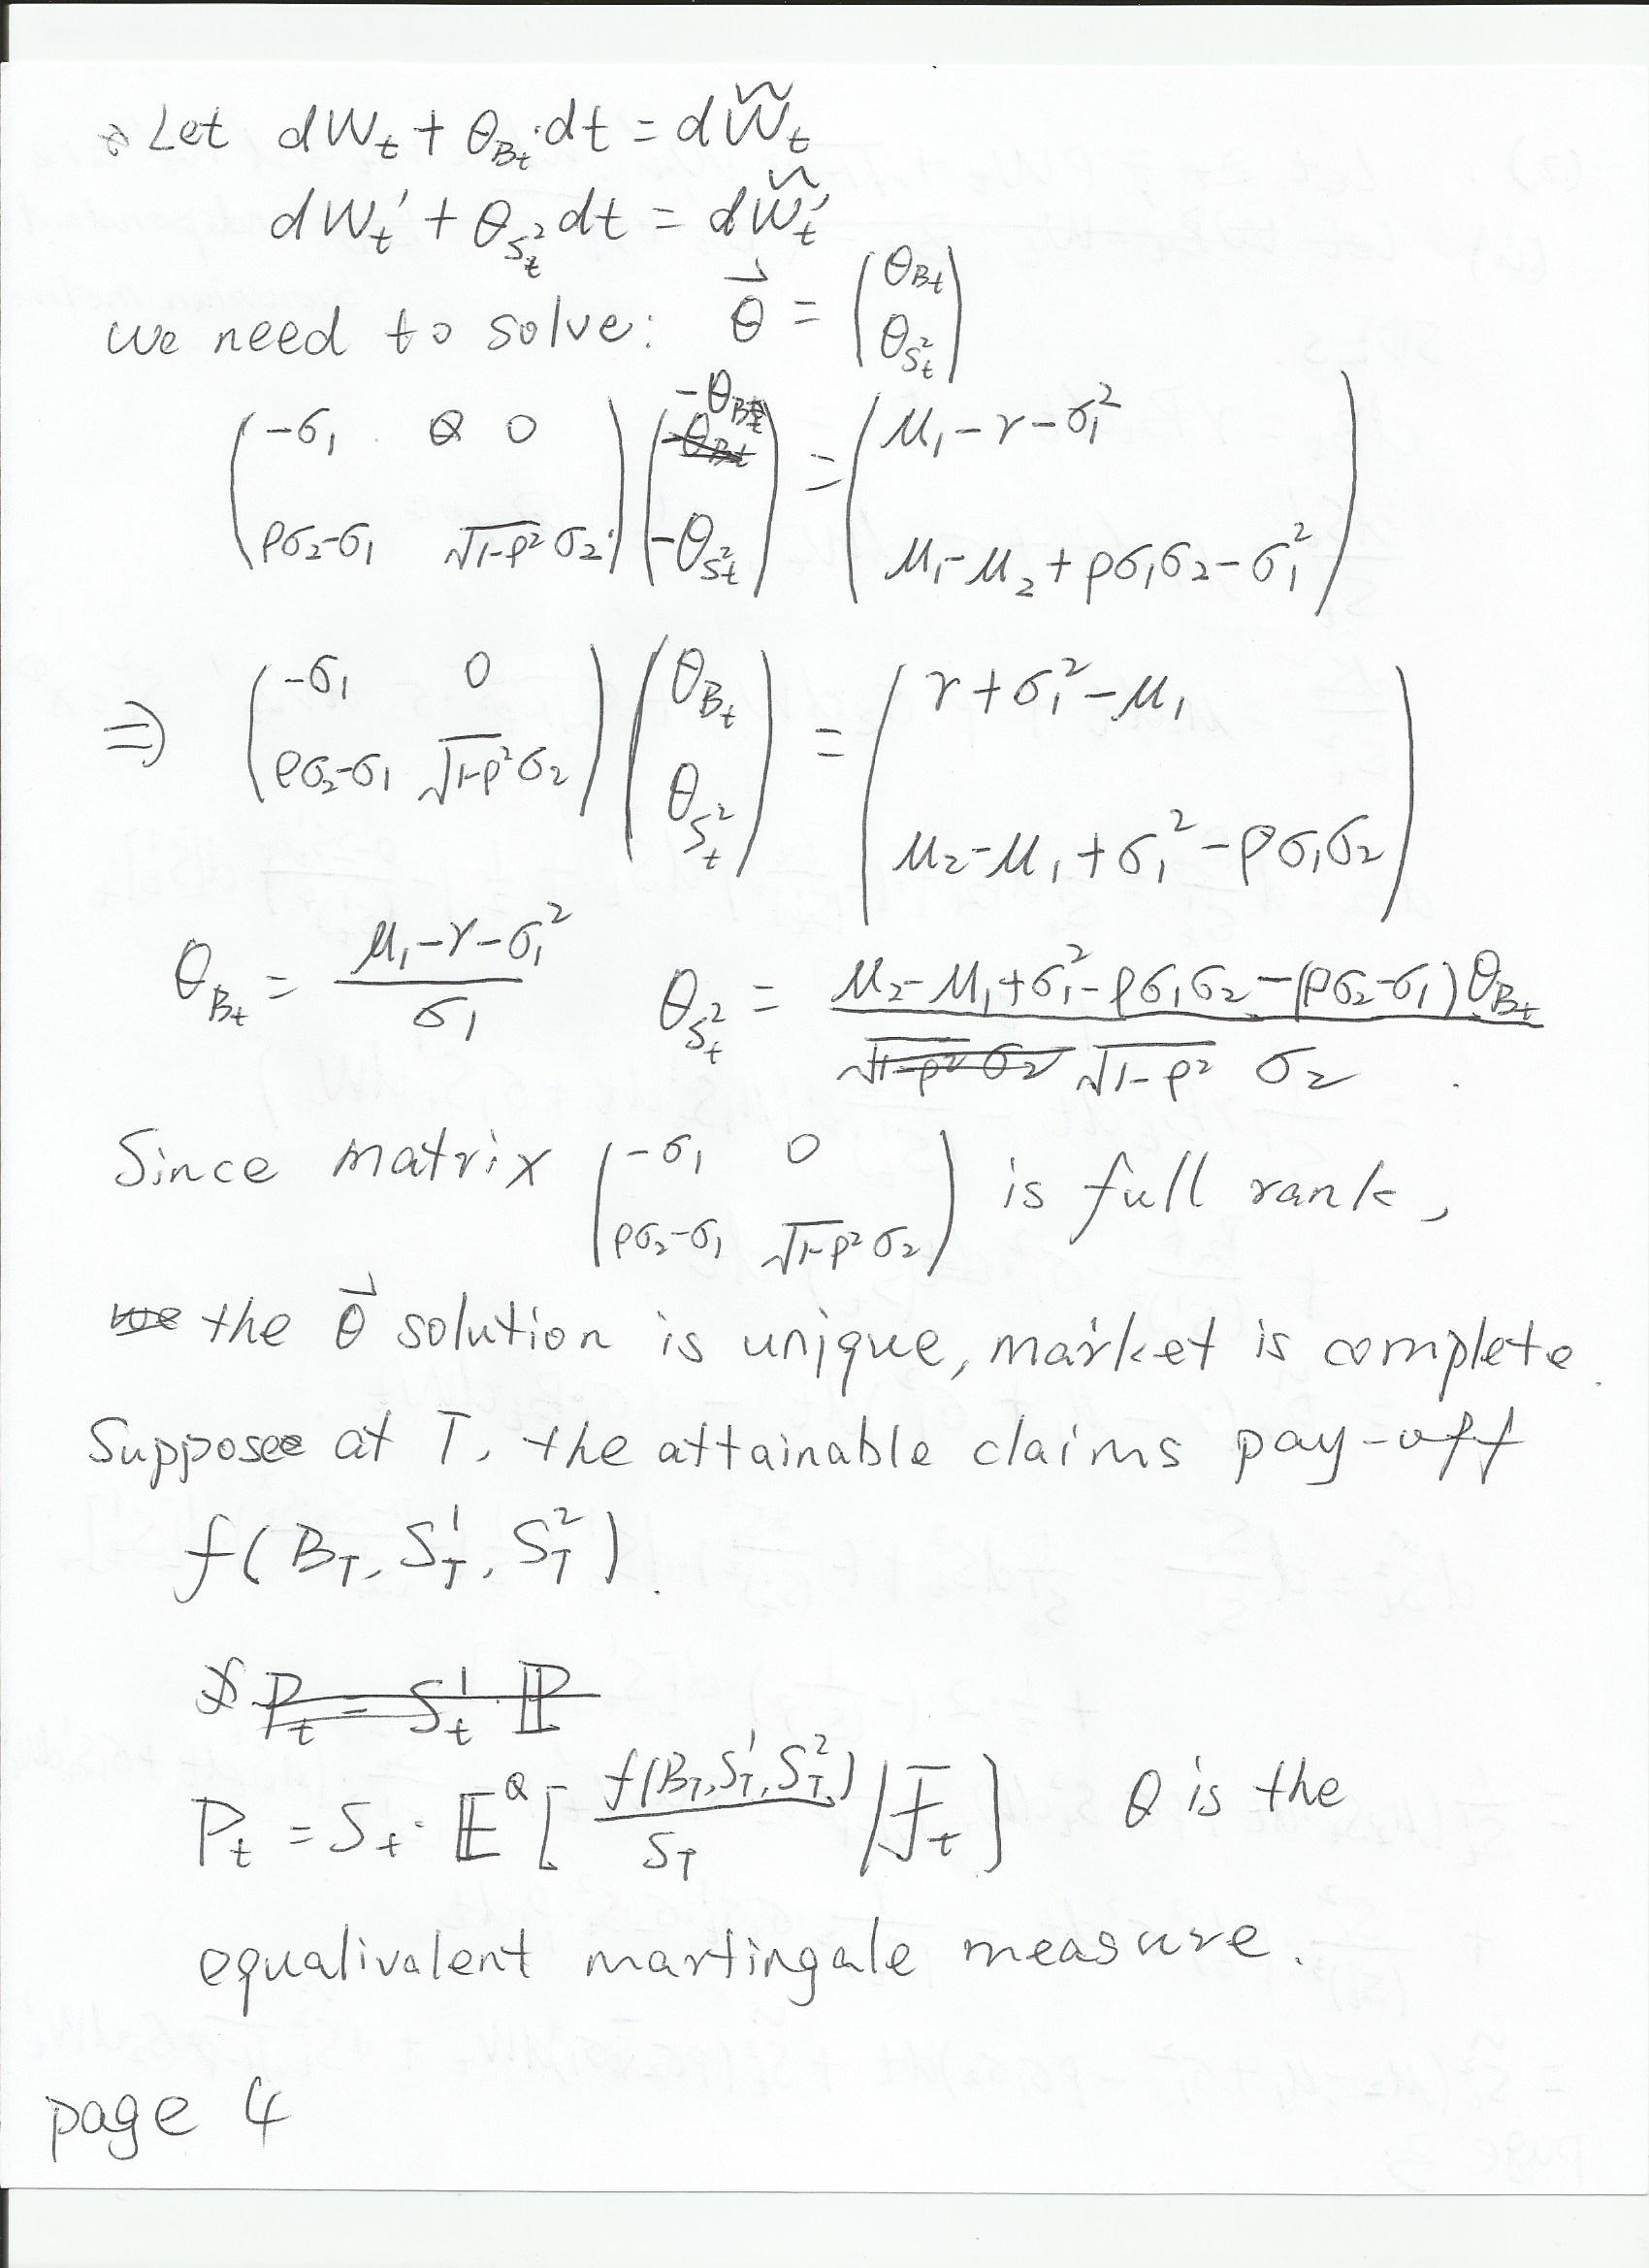 Let dW_t + θ_{B_t}·dt = dW̃_t
dW_t' + θ_{S_t^2} dt = dW̃_t'
we need to solve: θ⃗ = (θ_{B_t} ; θ_{S_t^2})
(-σ_1  0 ; ρσ_2-σ_1  √(1-ρ^2) σ_2) (-θ_{B_t} ; -θ_{S_t^2}) = (μ_1-r-σ_1^2 ; μ_1-μ_2+ρσ_1σ_2-σ_1^2)
⇒ (-σ_1  0 ; ρσ_2-σ_1  √(1-ρ^2) σ_2) (θ_{B_t} ; θ_{S_t^2}) = (r+σ_1^2-μ_1 ; μ_2-μ_1+σ_1^2-ρσ_1σ_2)
θ_{B_t} = (μ_1-r-σ_1^2)/σ_1   θ_{S_t^2} = (μ_2-μ_1+σ_1^2-ρσ_1σ_2-(ρσ_2-σ_1)θ_{B_t})/(√(1-ρ^2) σ_2).
Since matrix (-σ_1  0 ; ρσ_2-σ_1  √(1-ρ^2) σ_2) is full rank,
the θ⃗ solution is unique, market is complete.
Suppose at T, the attainable claims pay-off
f(B_T, S_T^1, S_T^2).
P_t = S_t^1·ℙ
P_t = S_t·𝔼^Q[f(B_T, S_T^1, S_T^2)/S_T /F_t]   Q is the
equalivalent martingale measure.
page 4